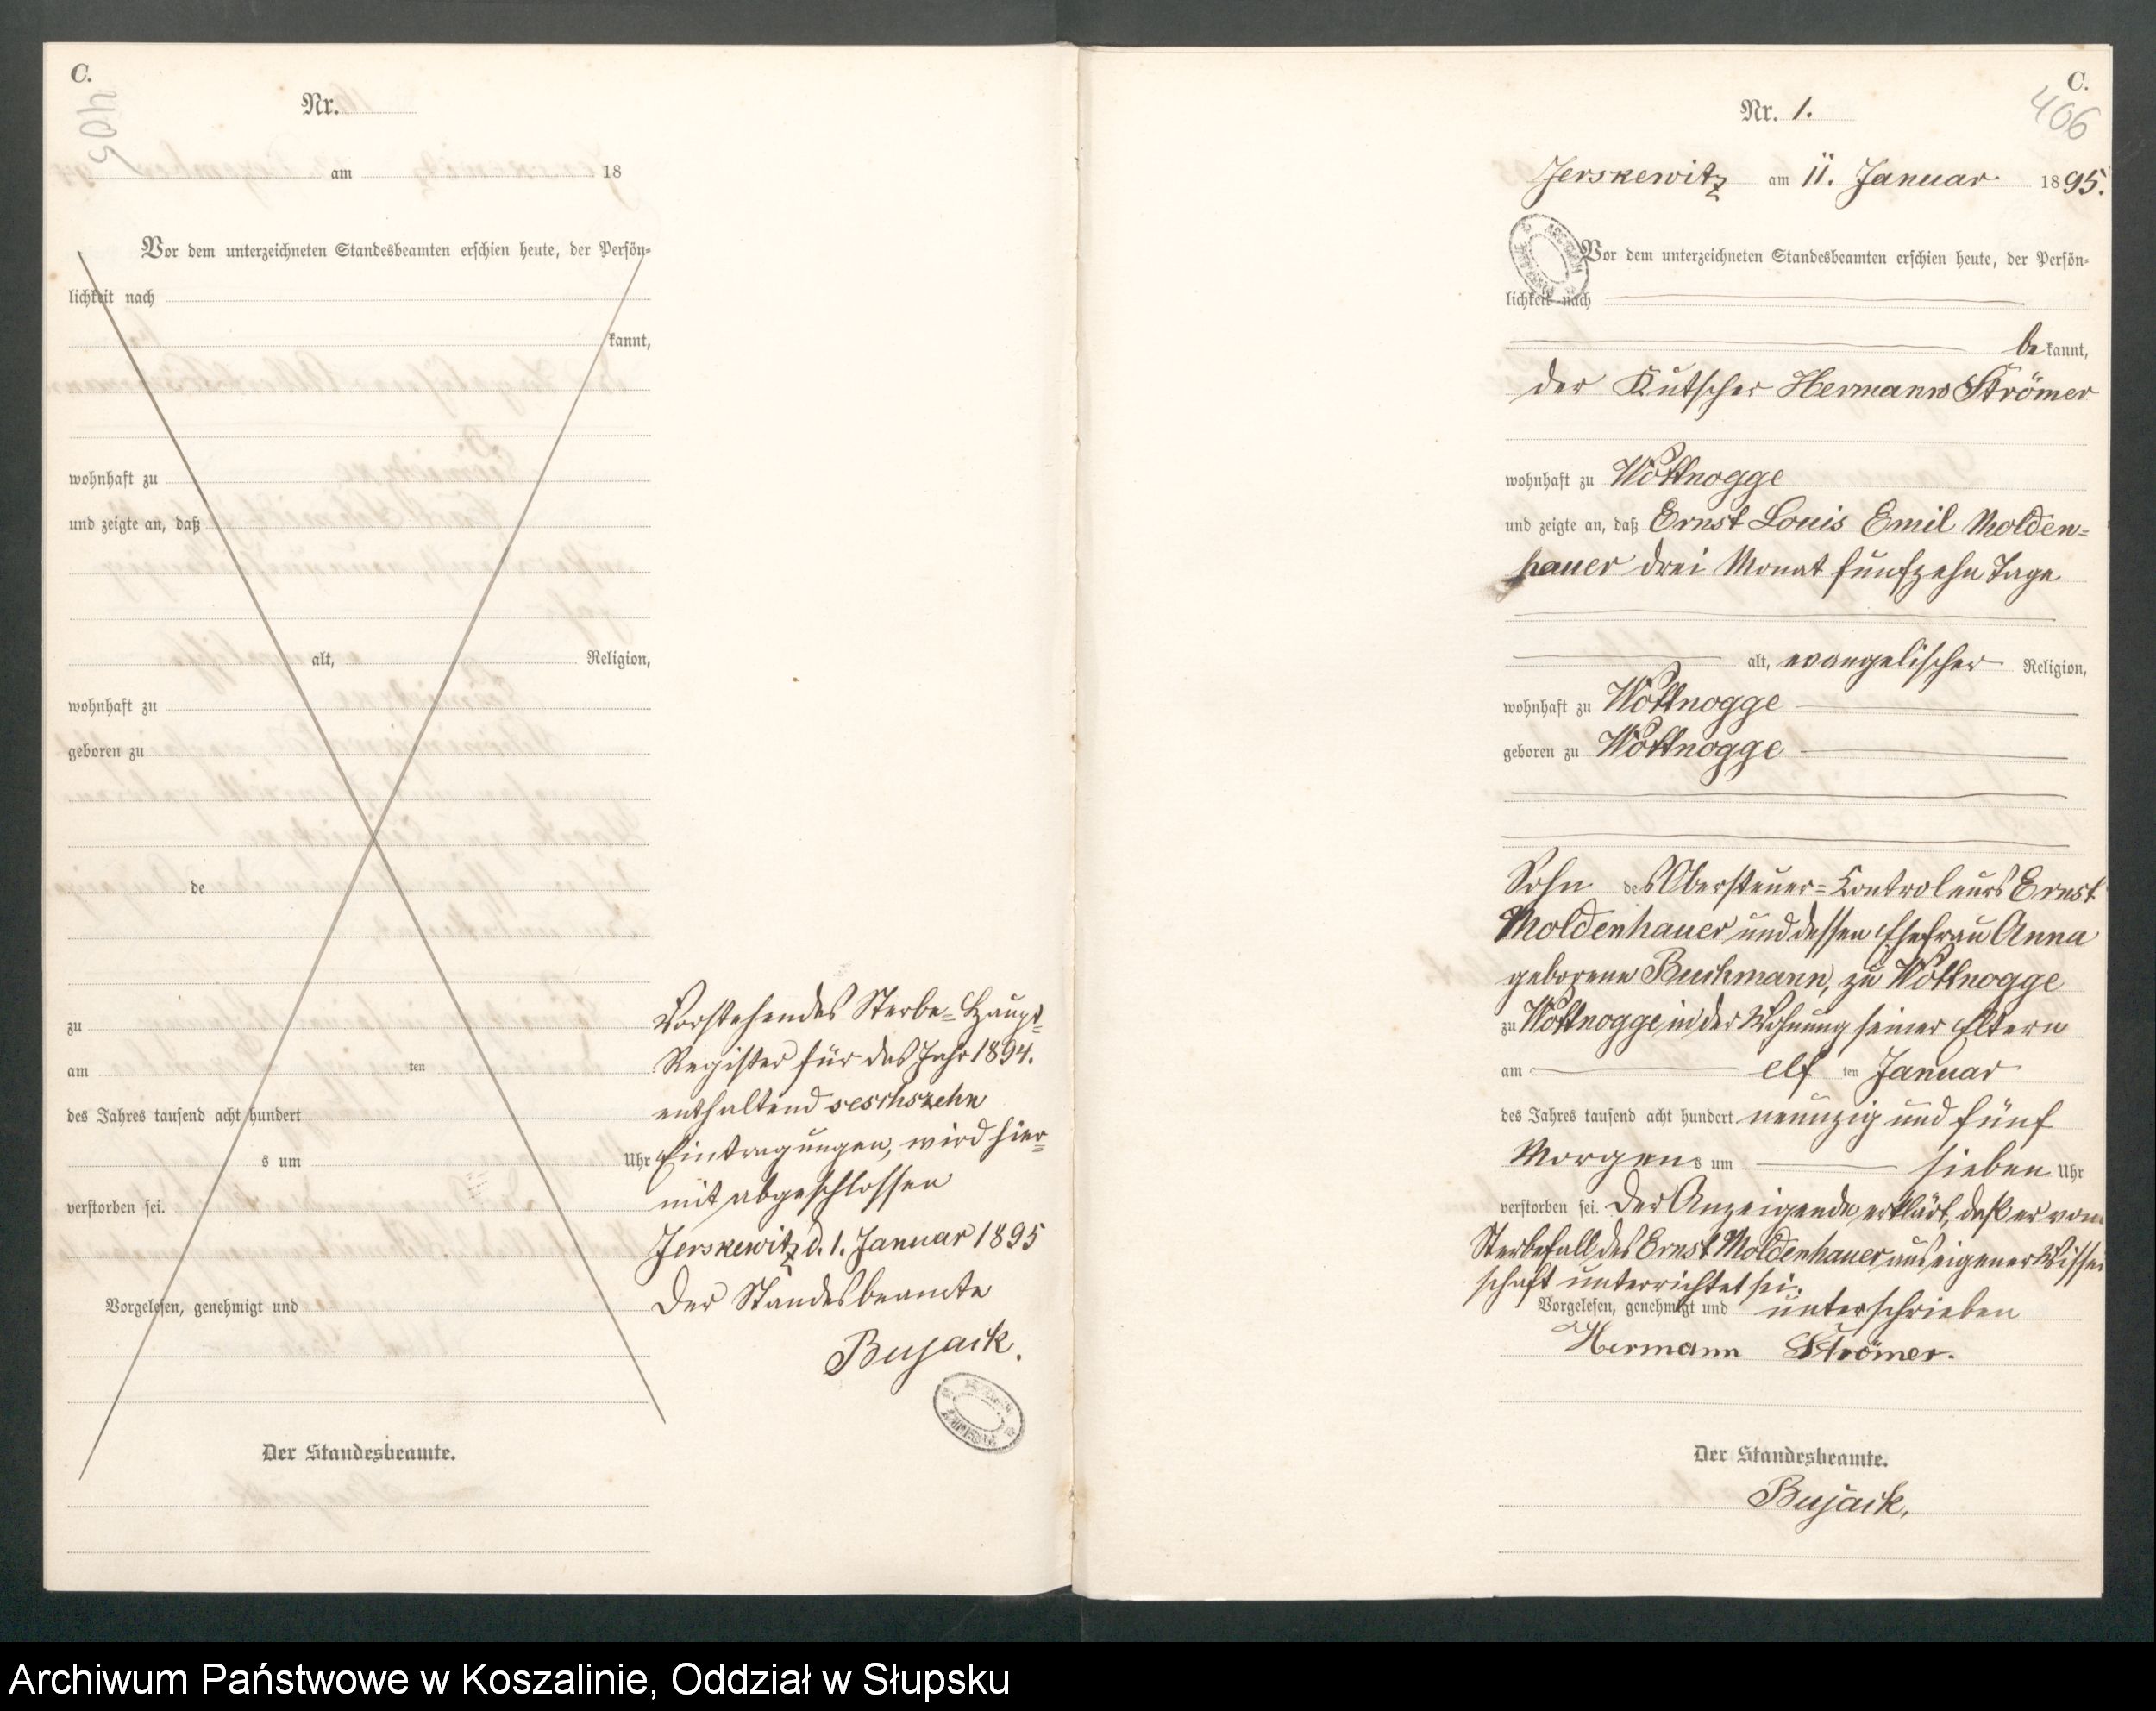 C.
405
Nr.
am 18
Vor dem unterzeichneten Standesbeamten erschien heute, der Persön-
lichkeit nach
kannt,
wohnhaft zu
und zeigte an, daß
alt, Religion,
wohnhaft zu
geboren zu
de
zu
am ten
des Jahres tausend acht hundert
s um Uhr
verstorben sei.
Vorgelesen, genehmigt und
Der Standesbeamte.
Vorstehendes Sterbe-Haupt-
Register für das Jahr 1894.
enthaltend sechszehn
Eintragungen, wird hier-
mit abgeschlossen
Jerskewitz d. 1. Januar 1895
Der Standesbeamte
Bujack.
C.
406
Nr. 1.
Jerskewitz am 11. Januar 1895.
Vor dem unterzeichneten Standesbeamten erschien heute, der Persön-
lichkeit nach
be kannt,
der Kutscher Hermann Strömer
wohnhaft zu Wottnogge
und zeigte an, daß Ernst Louis Emil Molden-
hauer drei Monat fünfzehn Tage
alt, evangelischer Religion,
wohnhaft zu Wottnogge
geboren zu Wottnogge
Sohn des Obersteuer-Controleurs Ernst
Moldenhauer und dessen Ehefrau Anna
geborene Buchmann, zu Wottnogge
zu Wottnogge in der Wohnung seiner Eltern
am elf ten Januar
des Jahres tausend acht hundert neunzig und fünf
Morgens um sieben Uhr
verstorben sei. Der Anzeigende erklärt, daß er vom
Sterbefall des Ernst Moldenhauer aus eigener Wissen
schaft unterrichtet sei.
Vorgelesen, genehmigt und unterschrieben
Hermann Strömer.
Der Standesbeamte.
Bujack.
Archiwum Państwowe w Koszalinie, Oddział w Słupsku